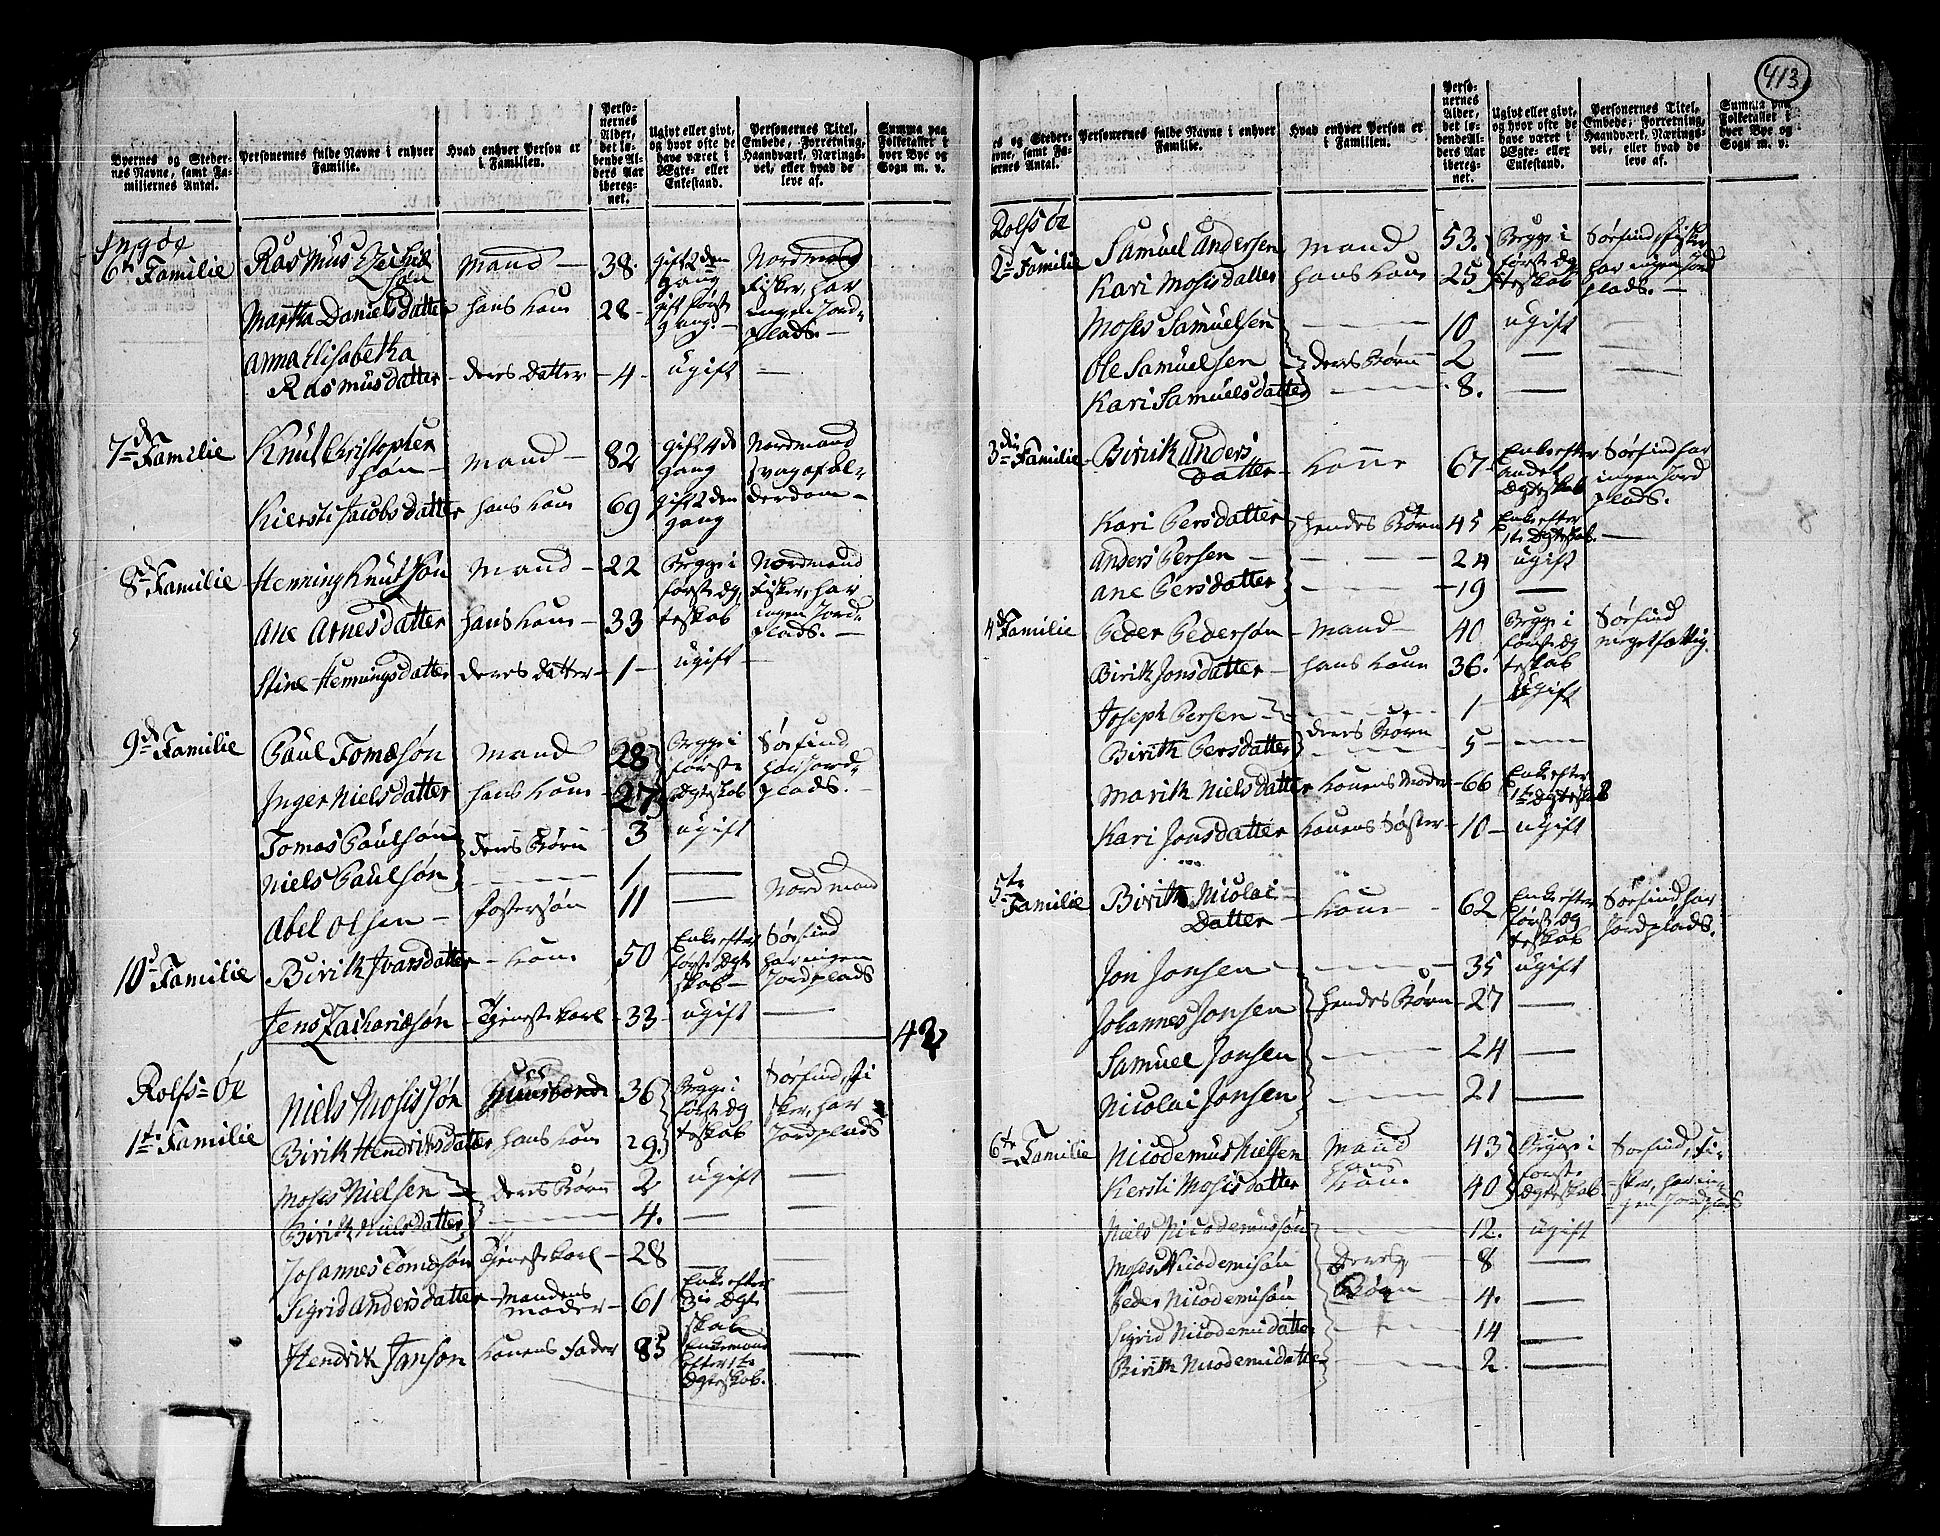 413
Byernes og Steder-
nes Navne, samt Fa-
miliernes Antal.
Personernes fulde Navne i enhver
Familie.
Hvad enhver Person er
i Familien.
Perso-
nernes
Alder,
det lø-
bende Al-
ders Aar
ibereg-
net.
Ugivt eller givt,
og hvor ofte de
have været i
Ægte- eller
Enkestand.
Personernes Titel,
Embede, Forretning,
Haandværk, Nærings-
vei, eller hvad de
leve af.
Summa paa
Folketallet i
hver Bye og
Sogn m. v.
Ingöe
6te Familie Rasmus
sön Mand 38 gift 2den gang Nordmand
Fisker, har
ingen Jord-
plads.
Martha Danielsdatter hans Kone 28 gift förste gang.
Anna Elisabetha
Rasmusdatter deres datter 4 ugift
7de Familie Knut Christopher
sön Mand 82 gift 4de gang Nordmand
Kiersti Jacobsdatter hans Kone 69 gift 2den gang
8de Familie Henning Knutsön Mand 22 Begge i förste Æg- Nordmand
Fisker, har
ingen Jord-
plads.
Ane Arnesdatter hans Kone 33 teskab
Stine Henningsdatter deres datter 1 ugift
9de Familie Paul Tomæsön Mand 28 Begge i förste Söefind
har Jord-
plads.
Inger Nielsdatter hans Kone 27 Ægteskab
Tomas Paulsön deres Börn 3 ugift
Niels Paulsön 1
Abel Olsen fostersön 11 Nordmand
10de Familie Birith Ivarsdatter Kone 50 Enke efter förste Ægte skab Söefind
har ingen
Jordplads
Jens Zachariæsön Tjenestekarl 33 ugift
42
Rolfs-öe
1te Familie Niels Mosissön Huusbond 36 Begge i förste Æg Söefind, Fi
sker, har
Jordplads
Birith Hendriksdatter hans Kone 29 teskab
Moses Nielsen deres Börn 2 ugift
Birith Nielsdatter 4.
Johannes Tomæsön Tjenestekarl 28
Sigrid Andersdatter Mandens moder 61 Enke efter Ægte skab
Hendrik Janson Konens Fader 85 Enkemand efter 1te Ægteskab.
Byernes og Steder-
nes Navne, samt Fa-
miliernes Antal.
Personernes fulde Navne i enhver
Familie.
Hvad enhver Person er
i Familien.
Perso-
nernes
Alder,
det lø-
bende Al-
ders Aar
ibereg-
net.
Ugivt eller givt,
og hvor ofte de
have været i
Ægte- eller
Enkestand.
Personernes Titel,
Embede, Forretning,
Haandværk, Nærings-
vei, eller hvad de
leve af.
Summa paa
Folketallet i
hver Bye og
Sogn m. v.
Rolfsöe
2den Familie Samuel Andersen Mand 53. Begge i förste Æg Söefind, Fisker
har ingen Jord
plads.
Kari Mosisdatter hans Kone 25 teskab
Moses Samuelsen 10 ugift
Ole Samuelsen deres Börn 2
Kari Samuelsdatter 8.
3die Familie Birith Anders
Datter Kone 67 Enke efter andet Ægteskab Söefind har
ingen Jord
plads.
Kari Persdatter hendes Börn 45 Enke efter 1te Ægteskab
Anders Persen 24 ugift
Ane Persdatter 19
4de Familie Peder Pedersön Mand 40 Begge i förste Æg Söefind
meget fattig.
Birith Jonsdatter hans Kone 36. teskab
Joseph Persen 1 ugift
Birith Persdatter deres Börn 5
Marith Nielsdatter Konens Moder 66 Enke efter 1te Ægteskab
Kari Jonsdatter Konens Söster 10 ugift
5te Familie Birith Nicolai
Datter Kone 62 Enke efter förste Æg teskab Söefind har
Jordplads.
Jon Jonsen 35 ugift
Johannes Jonsen hendes Börn 27
Samuel Jonsen 24
Nicolai Jonsen 21
6te Familie Nicodemus Nielsen Mand 43 Begge i förste Söefind, Fi-
sker, har in-
gen Jordplads
Kersti Mosisdatter hans Kone 40 Ægteskab
Niels Nicodemussön 12. ugift
Moses Nicodemisön Deres 8
Peder Nicodemisön Börn 4.
Sigrid Nicodemidatter 14
Birith Nicodemidatter 2.